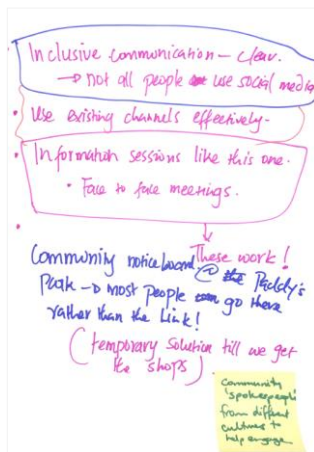 Inclusive communication – clear.
→ not all people use social media
• Use existing channels effectively.
• Information sessions like this one.
• Face to face meetings.
These work!
Community noticeboard @ Paddy's
Park → most people go there
rather than the Link!
(temporary solution till we get
the shops)
Community
'spokespeople'
from different
cultures to
help engage